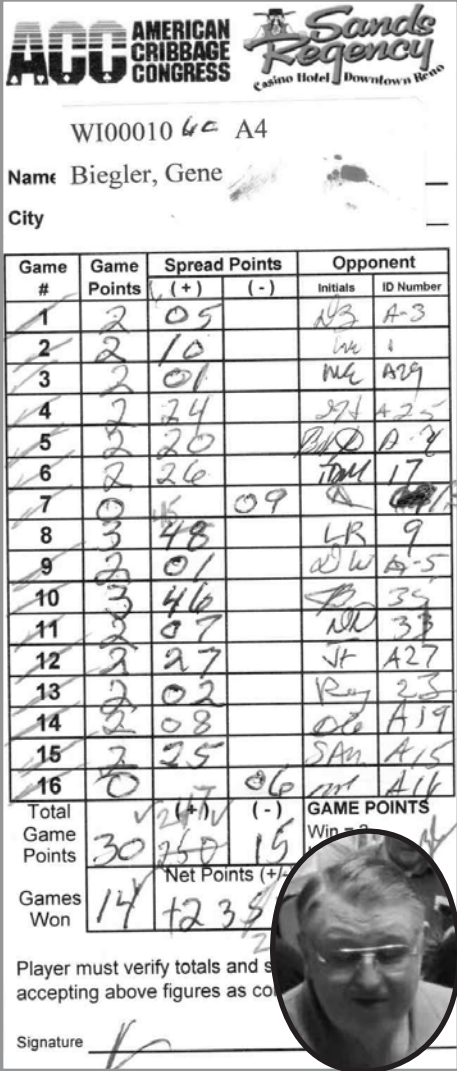 ACC AMERICAN CRIBBAGE CONGRESS
Sands Regency
Casino Hotel Downtown Reno
WI00010 A4
Name Biegler, Gene
City
Game # Game Points Spread Points (+) (-) Opponent Initials ID Number
1 2 05 A-3
2 2 10
3 2 01 A29
4 2 24 A25
5 2 20
6 2 26 17
7 0 09
8 3 48 LR 9
9 2 01 DW A-5
10 3 46 35
11 2 07 33
12 2 27 A27
13 2 02 23
14 2 08 A19
15 2 25 A15
16 0 06 A16
Total Game Points 30 (+) 250 (-) 15 GAME POINTS
Win =
Games Won 14 Net Points (+/- +235
Player must verify totals and s
accepting above figures as co
Signature